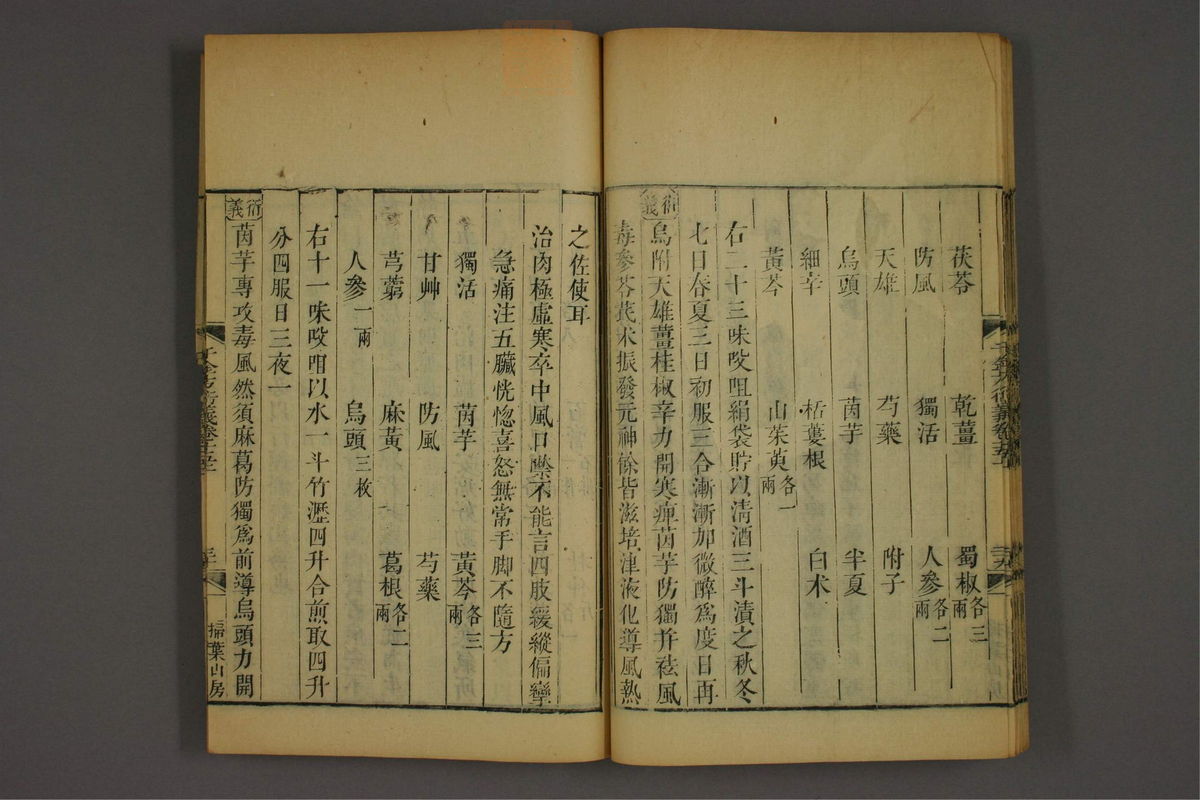 茯苓 乾薑 蜀椒各三兩
防風 獨活 人參各二兩
天雄 芍藥 附子
烏頭 茵芋 半夏
細辛 栝蔞根 白朮
黃芩 山茱萸各一兩
右二十三味㕮咀絹袋貯以清酒三斗漬之秋冬
七日春夏三日初服三合漸漸加微醉爲度日再
衍義
烏附天雄薑桂椒辛力開寒痺茵芋防獨并祛風
毒參苓茋朮振發元神餘皆滋培津液化導風熱
之佐使耳
治肉極虛寒卒中風口噤不能言四肢緩縱偏攣
急痛注五臟恍惚喜怒無常手脚不隨方
獨活 茵芋 黃芩各三兩
甘艸 防風 芍藥
芎藭 麻黃 葛根各二兩
人參一兩 烏頭三枚
右十一味㕮咀以水一斗竹瀝四升合煎取四升
分四服日三夜一
衍義
茵芋專攻毒風然須麻葛防獨爲前導烏頭力開
千金方衍義卷十五上
三十
掃葉山房